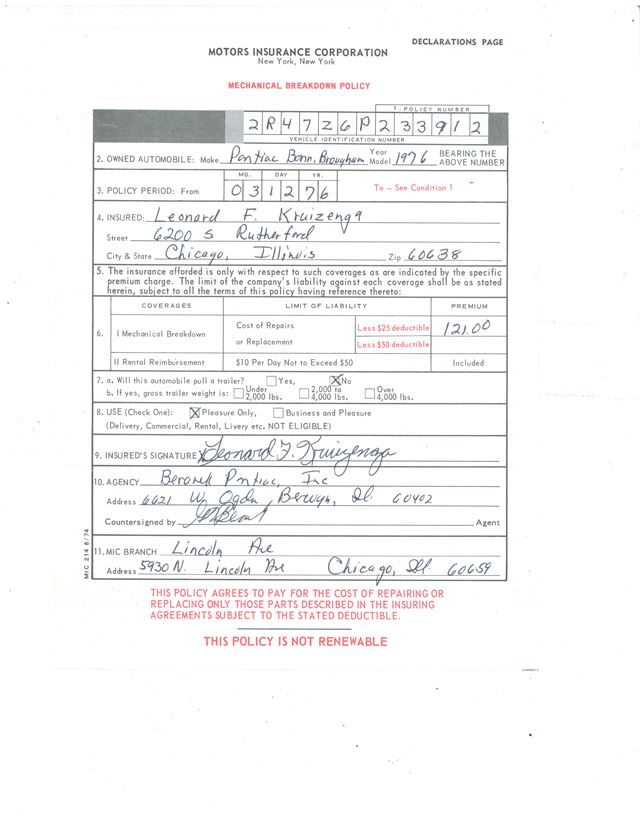 DECLARATIONS PAGE
MOTORS INSURANCE CORPORATION
New York, New York
MECHANICAL BREAKDOWN POLICY
1. POLICY NUMBER
2R47Z6P233912
VEHICLE IDENTIFICATION NUMBER
2. OWNED AUTOMOBILE: Make Pontiac Bonn, Brougham Year Model 1976 BEARING THE ABOVE NUMBER
MO. DAY YR.
3. POLICY PERIOD: From 03 12 76 To - See Condition 1
4. INSURED: Leonard F. Kruizenga
Street 6200 S Rutherford
City & State Chicago, Illinois Zip 60638
5. The insurance afforded is only with respect to such coverages as are indicated by the specific
premium charge. The limit of the company's liability against each coverage shall be as stated
herein, subject to all the terms of this policy having reference thereto:
COVERAGES LIMIT OF LIABILITY PREMIUM
6. I Mechanical Breakdown Cost of Repairs or Replacement Less $25 deductible 121.00
Less $50 deductible
II Rental Reimbursement $10 Per Day Not to Exceed $50 Included
7. a. Will this automobile pull a trailer? Yes, X No
b. If yes, gross trailer weight is: Under 2,000 lbs. 2,000 to 4,000 lbs. Over 4,000 lbs.
8. USE (Check One): X Pleasure Only, Business and Pleasure
(Delivery, Commercial, Rental, Livery etc. NOT ELIGIBLE)
9. INSURED'S SIGNATURE X Leonard F. Kruizenga
10. AGENCY Pontiac, Inc
Address 6621 W Ogden, Berwyn, Ill. 60402
Countersigned by Agent
11. MIC BRANCH Lincoln Ave
Address 5930 N. Lincoln Ave Chicago, Ill. 60659
MIC 214 8/74
THIS POLICY AGREES TO PAY FOR THE COST OF REPAIRING OR
REPLACING ONLY THOSE PARTS DESCRIBED IN THE INSURING
AGREEMENTS SUBJECT TO THE STATED DEDUCTIBLE.
THIS POLICY IS NOT RENEWABLE